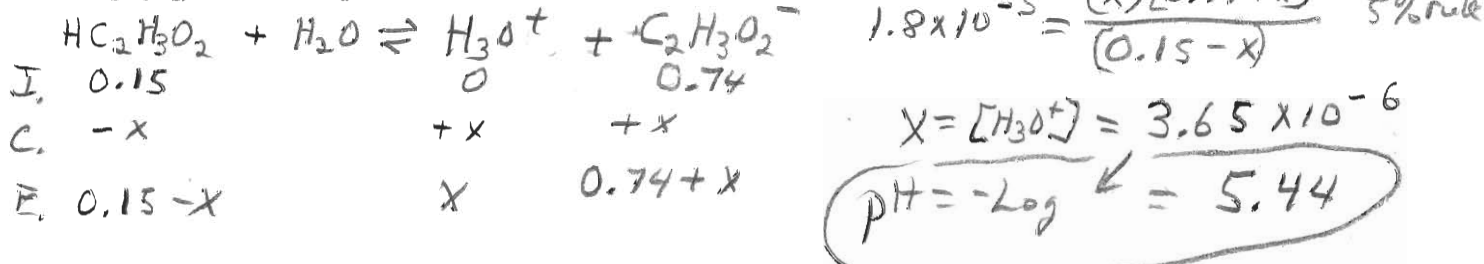 HC₂H₃O₂ + H₂O ⇌ H₃O⁺ + C₂H₃O₂⁻
I. 0.15 0 0.74
C. -x +x +x
E. 0.15-x x 0.74+x
1.8x10⁻⁵ = / (0.15-x) 5% rule
x = [H₃O⁺] = 3.65 x10⁻⁶
pH = -Log ↙ = 5.44